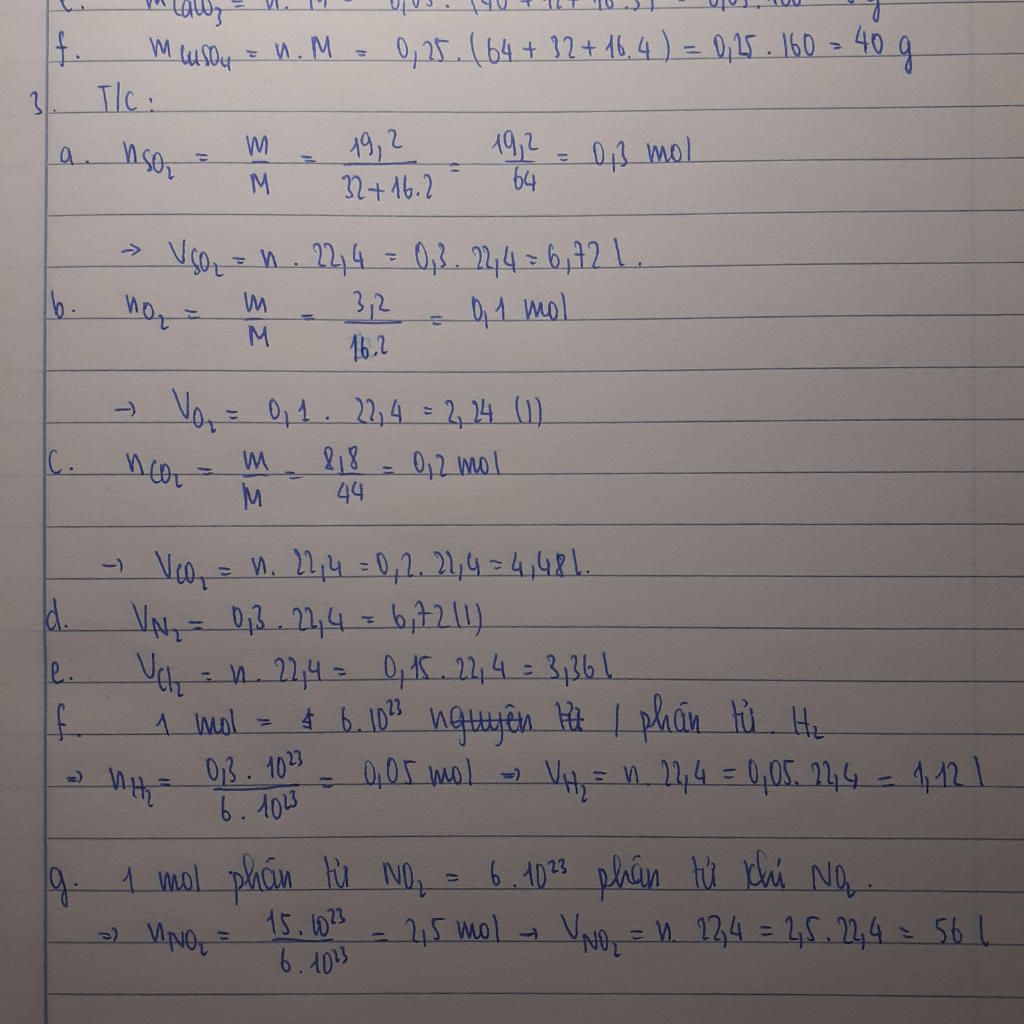 f. mCuSO4 = n.M = 0,25.(64+32+16.4) = 0,25.160 = 40 g
3. T/C:
a. nSO2 = m/M = 19,2/32+16.2 = 19,2/64 = 0,3 mol
→ VSO2 = n . 22,4 = 0,3. 22,4 = 6,72 l.
b. nO2 = m/M = 3,2/16.2 = 0,1 mol
→ VO2 = 0,1 . 22,4 = 2,24 (l)
c. nCO2 = m/M = 8,8/44 = 0,2 mol
→ VCO2 = n. 22,4 = 0,2. 22,4 = 4,48 l.
d. VN2 = 0,3 . 22,4 = 6,72 (l)
e. VCl2 = n. 22,4 = 0,15. 22,4 = 3,36 l
f. 1 mol = 6.10²³ nguyên tử / phân tử. H2
⇒ nH2 = 0,3 . 10²³/6 . 10²³ = 0,05 mol ⇒ VH2 = n. 22,4 = 0,05. 22,4 = 1,12 l
g. 1 mol phân tử NO2 = 6.10²³ phân tử khí NO2.
⇒ nNO2 = 15.10²³/6.10²³ = 2,5 mol → VNO2 = n. 22,4 = 2,5. 22,4 = 56 l